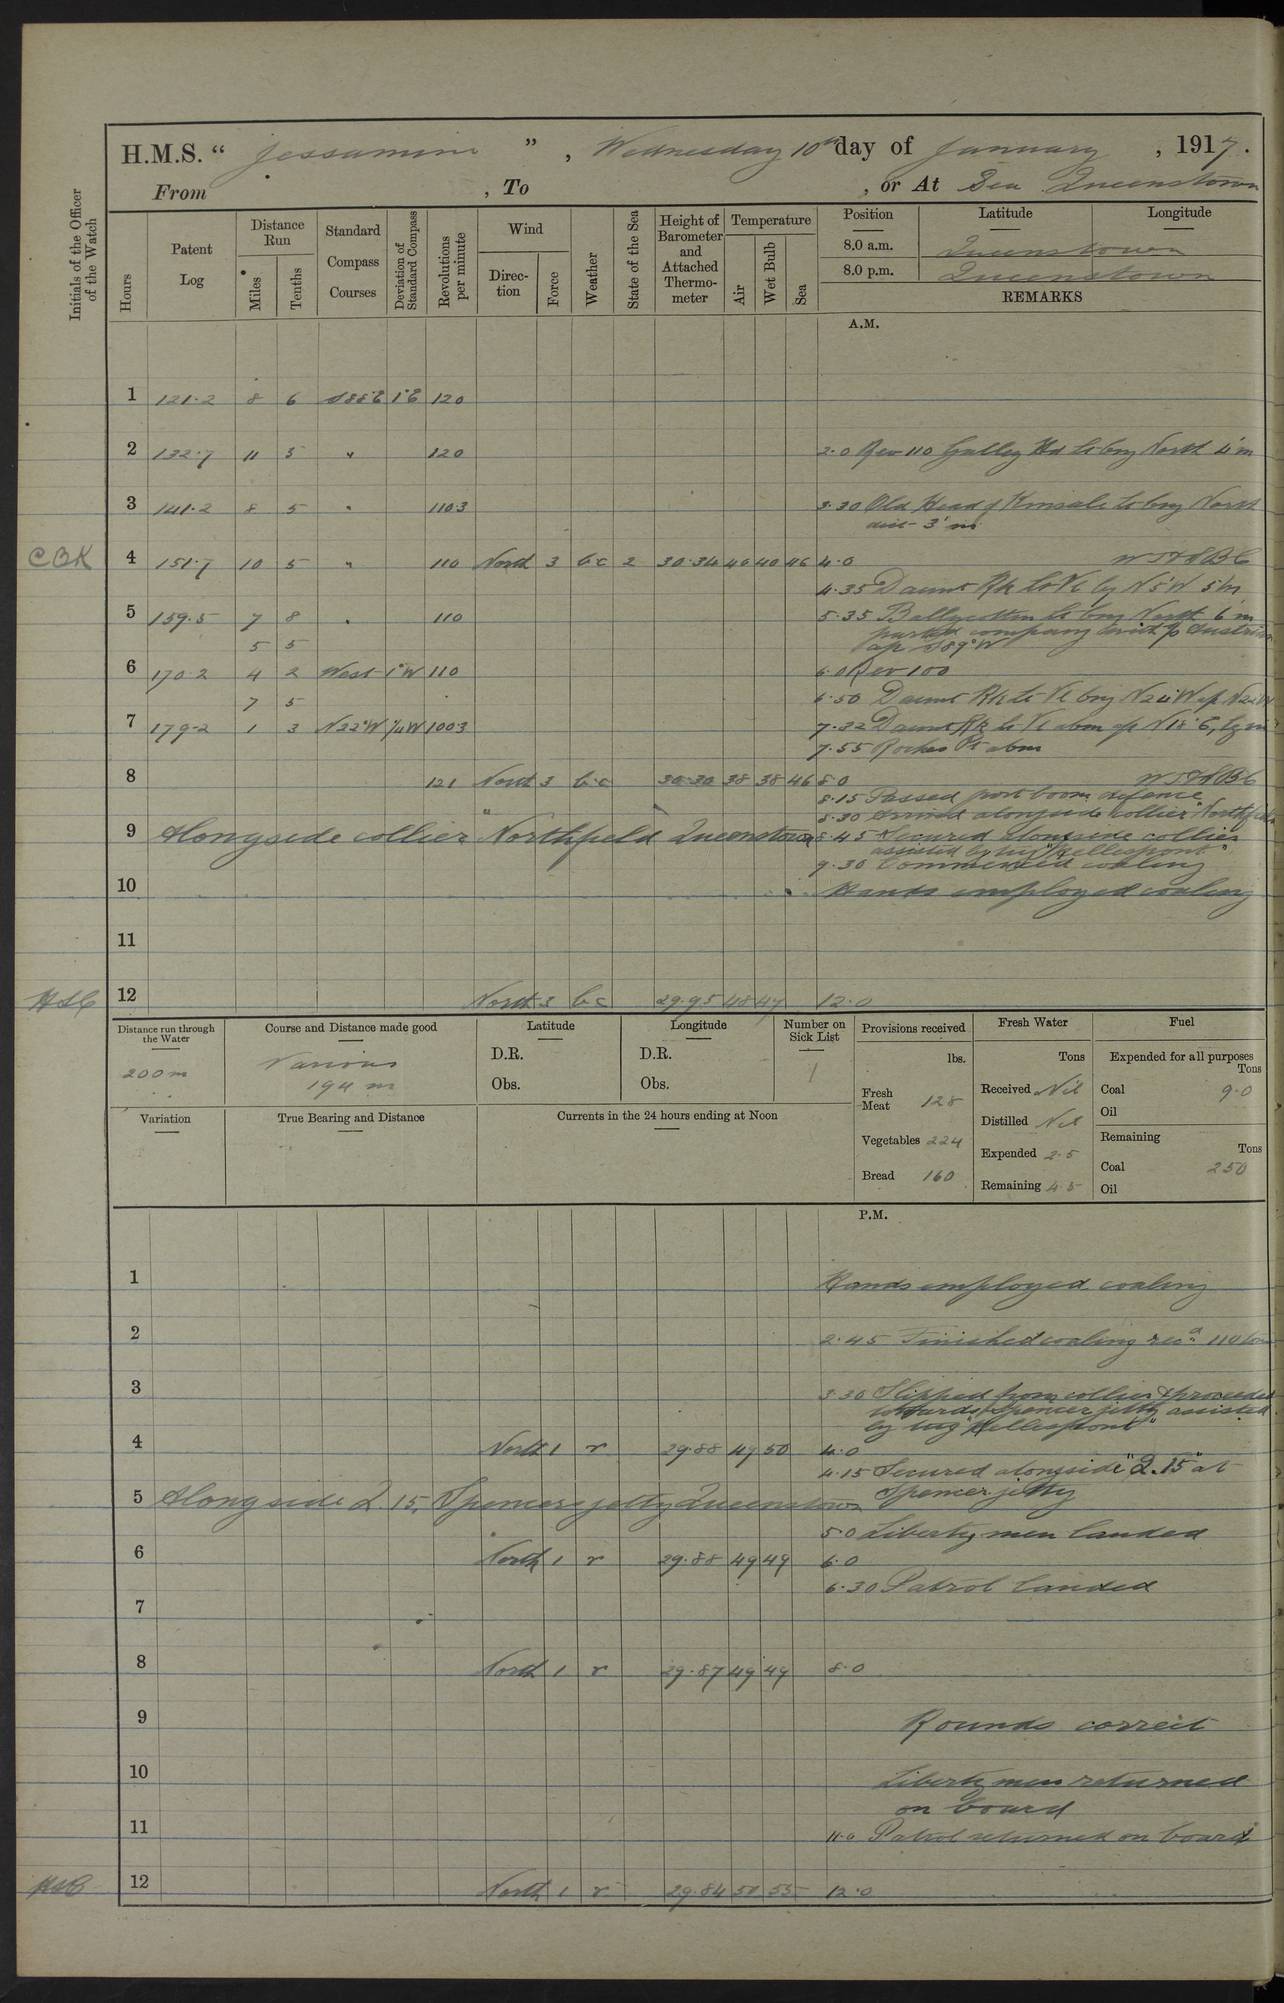 H.M.S. “ Jessamine ” , Wednesday 10th day of January , 1917.
From , To , or At Sea Queenstown
Initials of the Officer of the Watch
Hours
Patent Log
Distance Run
Miles
Tenths
Standard Compass Courses
Deviation of Standard Compass
Revolutions per minute
Wind
Direction
Force
Weather
State of the Sea
Height of Barometer and Attached Thermometer
Temperature
Air
Wet Bulb
Sea
Position
Latitude
Longitude
8.0 a.m. Queenstown
8.0 p.m. Queenstown
REMARKS
A.M.
1 121·2 8 6 S88°E 1°E 120
2 132·7 11 5 " 120 2·0 Rev 110 Galley Hd Lt brg North 4'm
3 141·2 8 5 " 110.3 3·30 Old Head of Kinsale Lt brg North
dist 3' m
CBK 4 151·7 10 5 " 110 North 3 bc 2 30·34 40 40 46 4·0
4·35 Daunt Rk Lt Vl brg N5°W 5'm
5 159·5 7 8 " 110 5·35 Ballycotton Lt brg North 6'm
5 5 parted company with
a/c S89°W
6 170·2 4 2 West 1°W 110 6·0 Rev 100
7 5 6·50 Daunt Rk Lt Vl brg N24°W a/c N22°W
7 179·2 1 3 N22°W ¼W 100.3 7·32 Daunt Rk Lt Vl abm a/c N18°E,
7·55 Roches Pt abm
8 121 North 3 b·c 30·30 38 38 46 8·0
8·15 Passed port boom defence
8·30 Arrived alongside collier "Northfield"
9 Alongside collier "Northfield" Queenstown 8·45 Secured alongside collier
assisted by tug "Hellespont"
9·30 Commenced coaling
10 Hands employed coaling
11
12 North 3 bc 29·95 48 47 12·0
Distance run through the Water
200m
Course and Distance made good
Various
194 m
Latitude
D.R.
Obs.
Longitude
D.R.
Obs.
Number on Sick List
1
Variation
True Bearing and Distance
Currents in the 24 hours ending at Noon
Provisions received
lbs.
Fresh Meat 128
Vegetables 224
Bread 160
Fresh Water
Tons
Received Nil
Distilled Nil
Expended 2·5
Remaining 45
Fuel
Expended for all purposes
Tons
Coal 9·0
Oil
Remaining
Tons
Coal 250
Oil
P.M.
1 Hands employed coaling
2 2·45 Finished coaling recd 110 tons
3 3·30 Slipped from collier & proceeded
towards Spencer jetty assisted
by tug "Hellespont"
4 North 1 r 29·88 49 50 4·0
4·15 Secured alongside "Q.15" at
5 Alongside Q.15, Spencer jetty Queenstown Spencer jetty
5·0 Liberty men landed
6 North 1 r 29·88 49 49 6·0
6·30 Patrol landed
7
8 North 1 r 29·87 49 49 8·0
9 Rounds correct
10 Liberty men returned
on board
11 11·0 Patrol returned on board
12 North 1 r 29·84 50 55 12·0